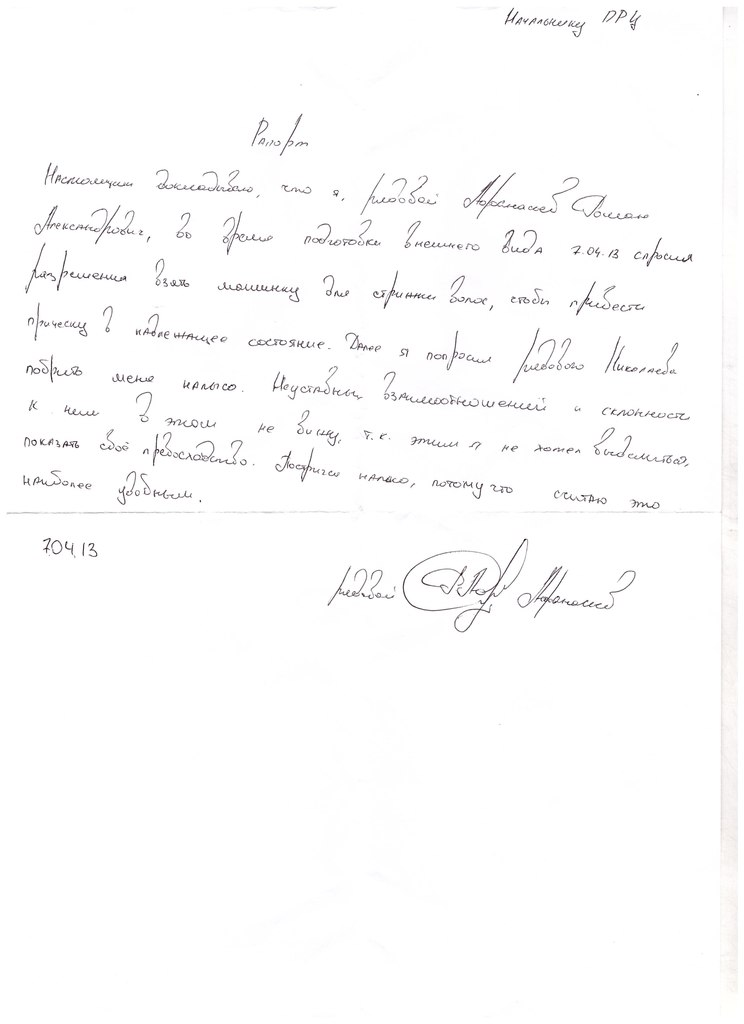 Начальнику ДРЦ
Рапорт
Настоящим докладываю, что я, рядовой Афанасьев Роман
Александрович, во время подготовки внешнего вида 7.04.13 спросил
разрешения взять машинку для стрижки волос, чтобы привести
прическу в надлежащее состояние. Далее я попросил рядового Николаева
побрить меня налысо. Неуставных взаимоотношений и склонности
к ним в этом не вижу, т.к. этим я не хотел выделиться,
показать своё превосходство. Постригся налысо, потому что считаю это
наиболее удобным.
7.04.13
рядовой Афанасьев